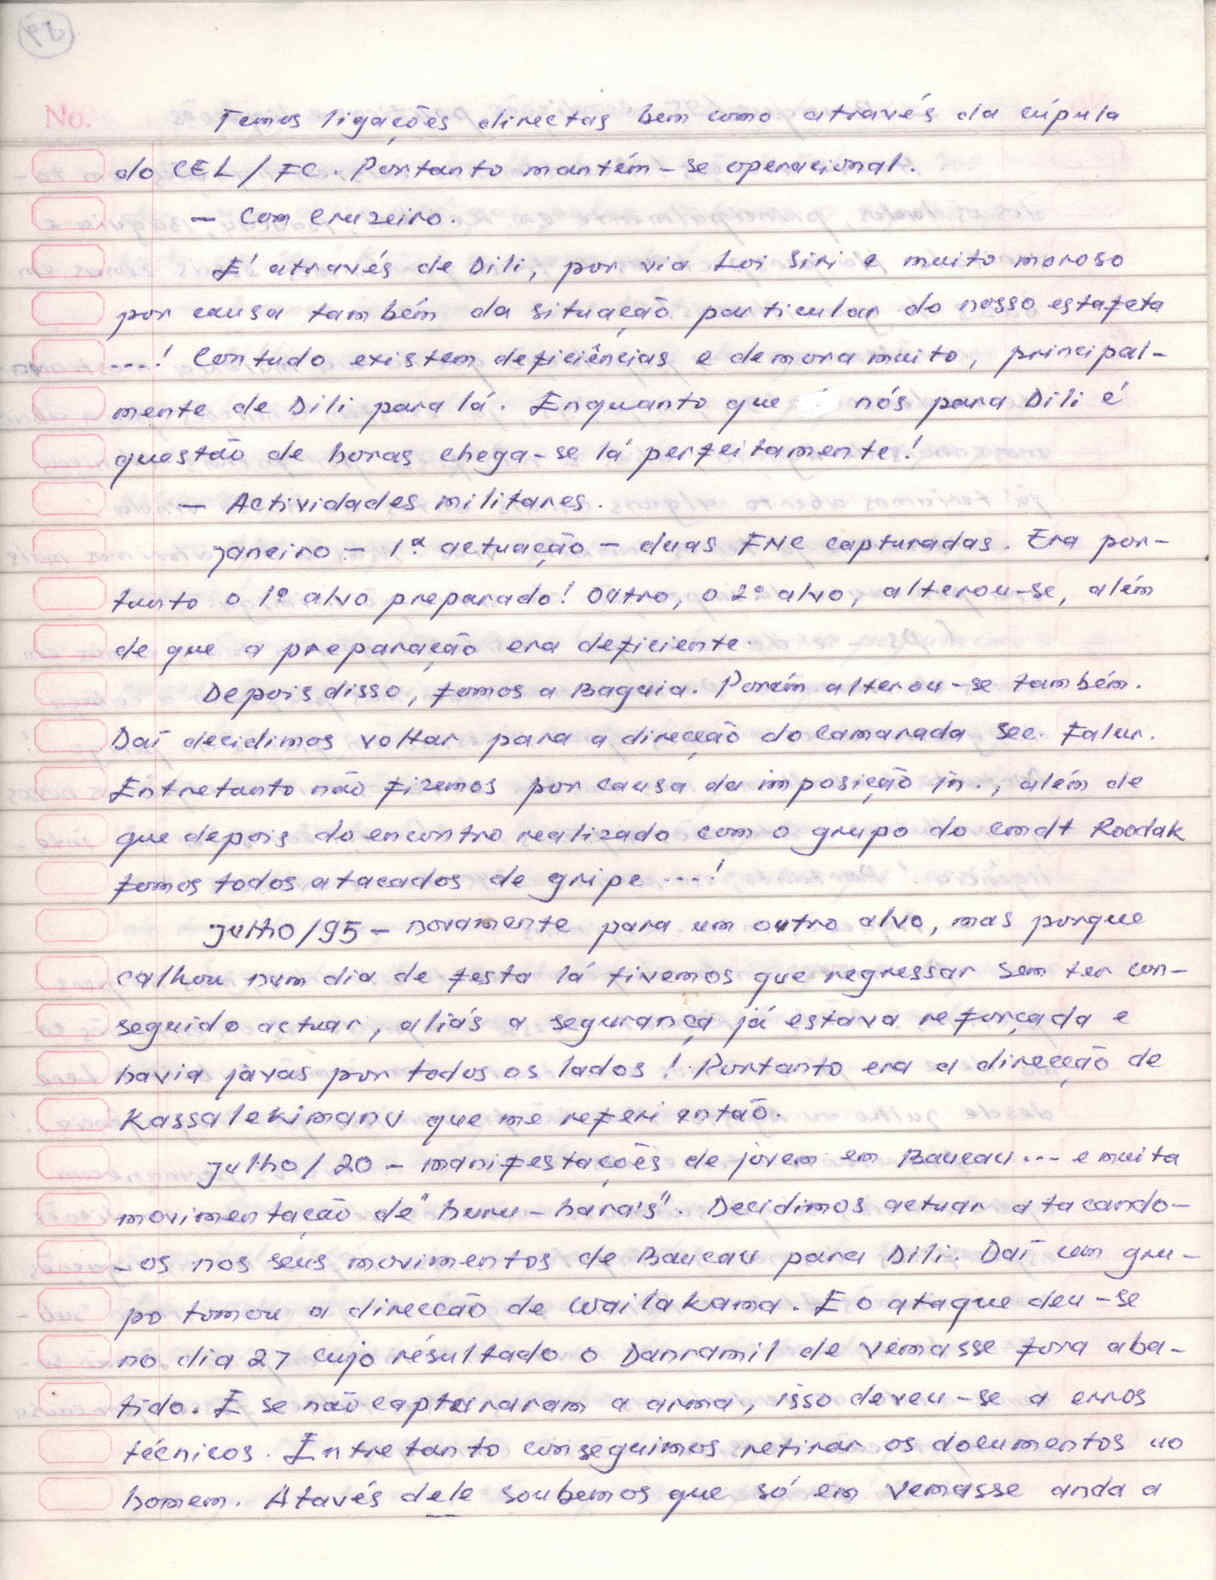 No.
Temos ligações directas bem como através da cúpula
do CEL/FC. Portanto mantém-se operacional.
- Com Cruzeiro.
É através de Dili, por via Loi Siri e muito moroso
por causa também da situação particular do nosso estafeta
...! Contudo existem deficiências e demora muito, principal-
mente de Dili para lá. Enquanto que nós para Dili é
questão de horas chega-se lá perfeitamente!
- Actividades militares.
Janeiro - 1ª actuação - duas FNC capturadas. Era por-
tanto o 1º alvo preparado! Outro, o 2º alvo, alterou-se, além
de que a preparação era deficiente.
Depois disso, fomos a Baguia. Porém alterou-se também.
Daí decidimos voltar para a direcção do Camarada Sec. Falur.
Entretanto não fizemos por causa da imposição in., além de
que depois do encontro realizado com o grupo do Cmdt Roodak
fomos todos atacados de gripe ...!
Julho/95 - novamente para um outro alvo, mas porque
calhou num dia de festa lá tivemos que regressar sem ter con-
seguido actuar, aliás a segurança já estava reforçada e
havia javas por todos os lados! Portanto era a direcção de
Kassalekimanu que me referi então.
Julho/20 - manifestações de jovem em Baucau ... e muita
movimentação de "huru-hara's". Decidimos actuar atacando-
-os nos seus movimentos de Baucau para Dili. Daí um gru-
po tomou a direcção de Wailakama. E o ataque deu-se
no dia 27 cujo résultado o Danramil de Vemasse fora aba-
tido. E se não capturaram a arma, isso deveu-se a erros
técnicos. Entretanto conseguimos retirar os documentos ao
homem. Atavés dele soubemos que só em Vemasse anda a